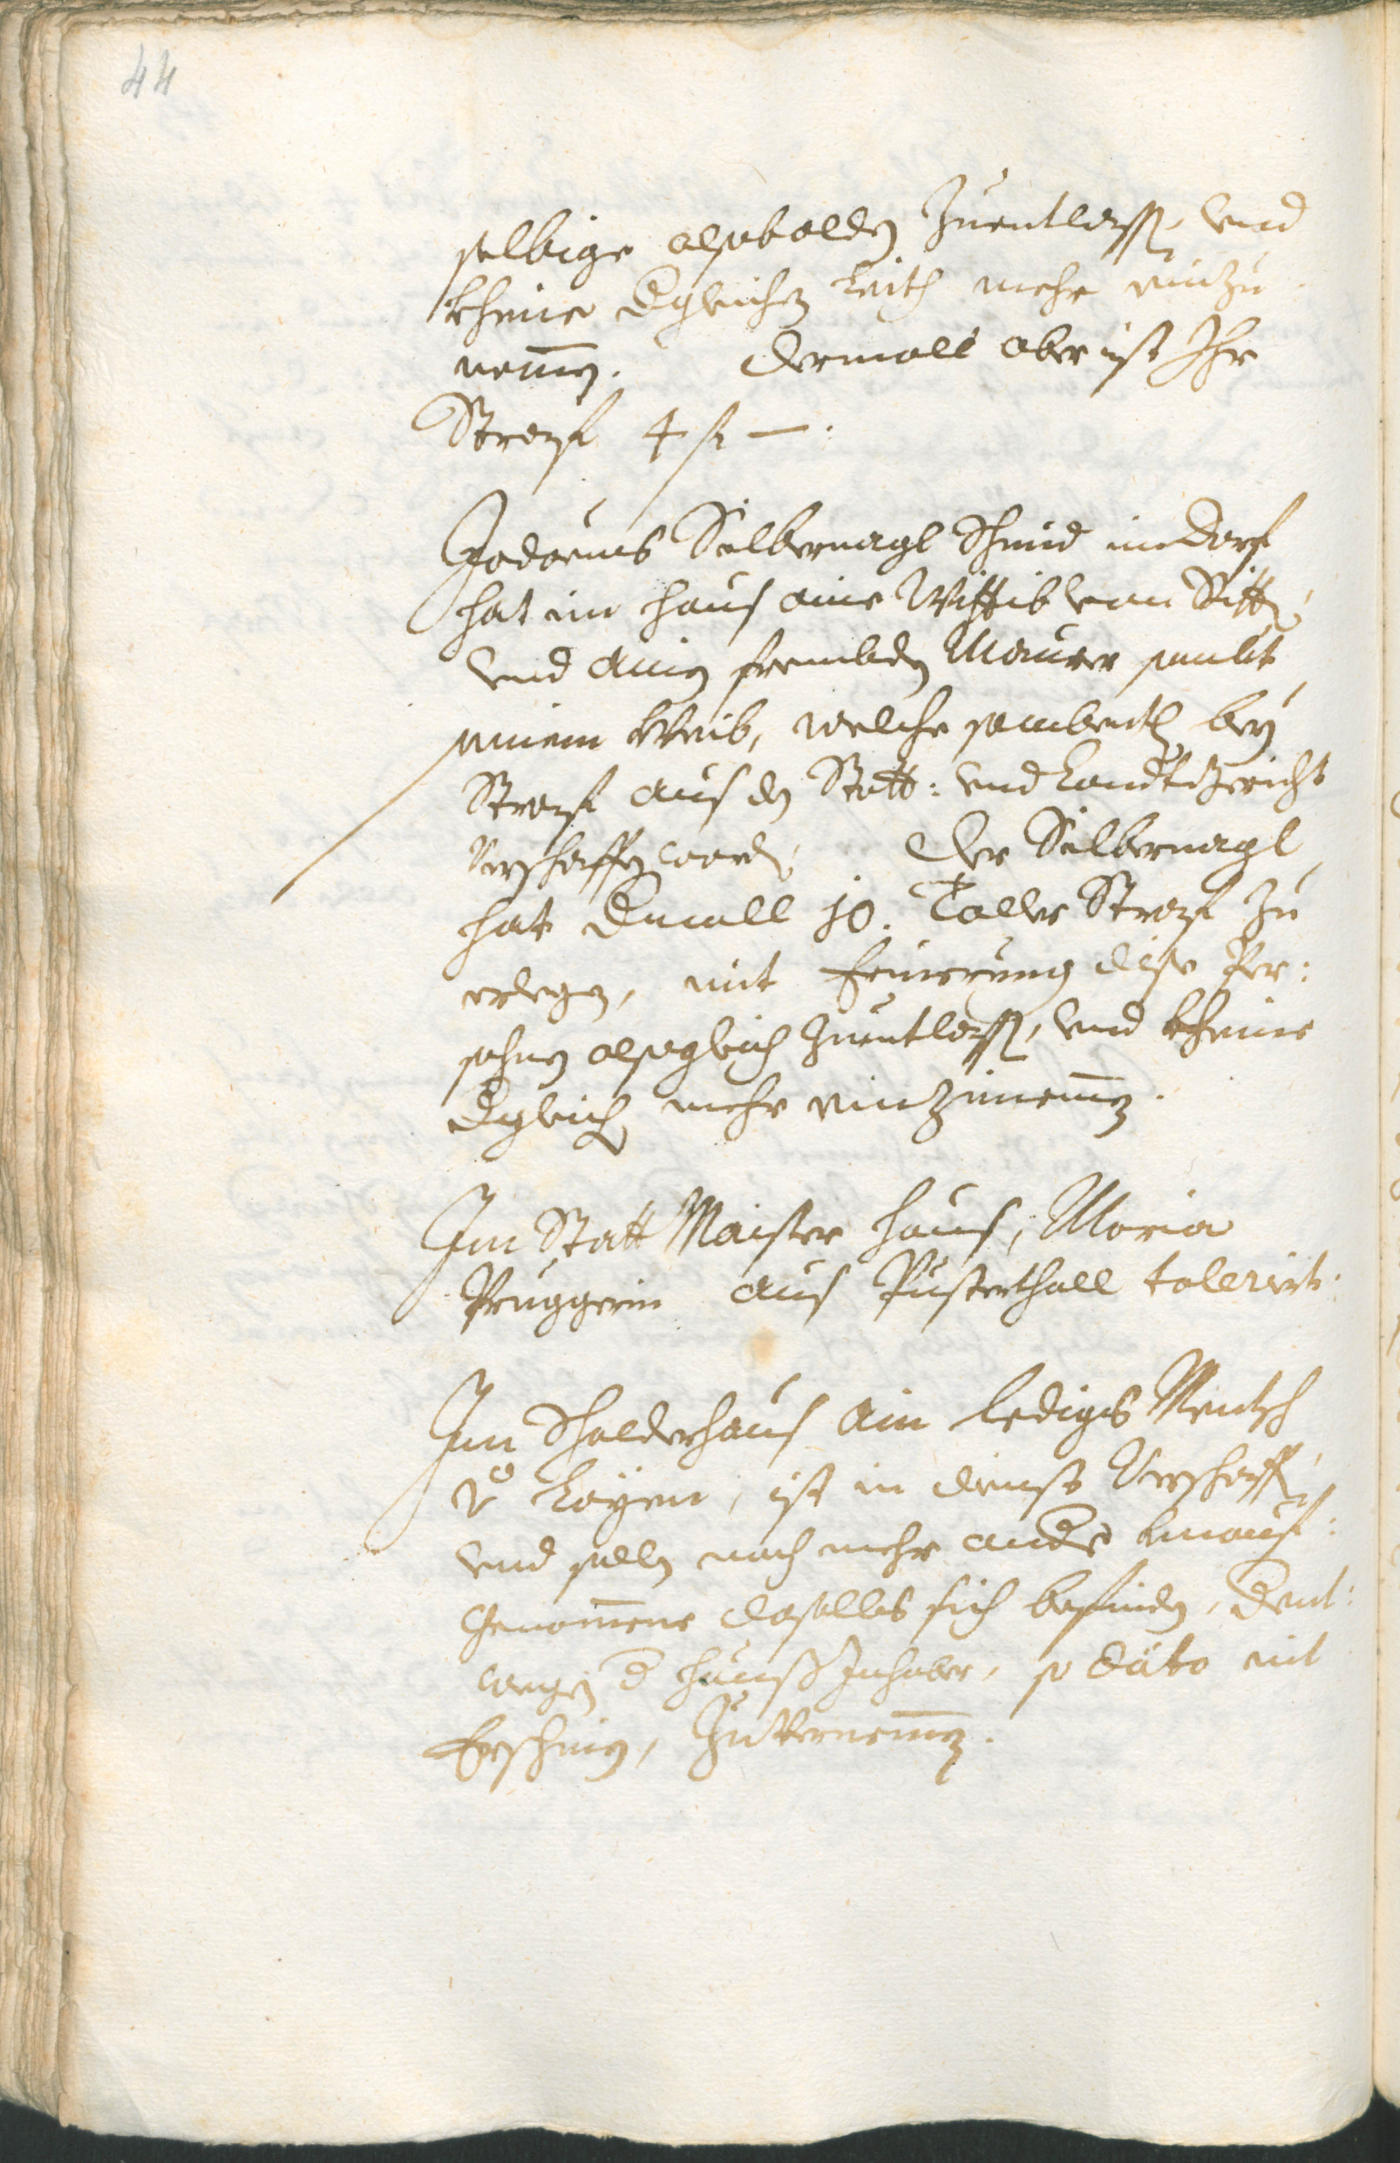 44
selbige alsobalden zuentlassen, vnd
kheine dgleichen Leith mehr einzu
nemmen. Dermall aber ist Ihr
Straff 4 fl —:
Jodocus Silbernagl Schmid im Dorf
hat im Haus aine Wittib von Ritten,
vnd ainen frembden Maurer sambt
seinem Weib, welche sambentlich bey
Straff aus den Statt: vnd Landtgericht
Verschaffen worden. Der Silbernagl
hat dmall 10. Taller Straff zu
erlegen, mit Erinerung dise Per:
sohnen alsogleich zuentlassen, vnd kheine
dgleichen mehr einzunemmen.
Im Statt Maister Haus, Maria
Pruggerin aus Pusterthall tolerirt.
Im Schalderhaus ain lediges Mentsch
v Layen, ist in dienst Verschaffen,
vnd sollen noch mehr andere
genommene daselbs sich befinden, dent:
wegen d Hauss Inhaber, so dato nit
Erschinen, zuVernemmen.